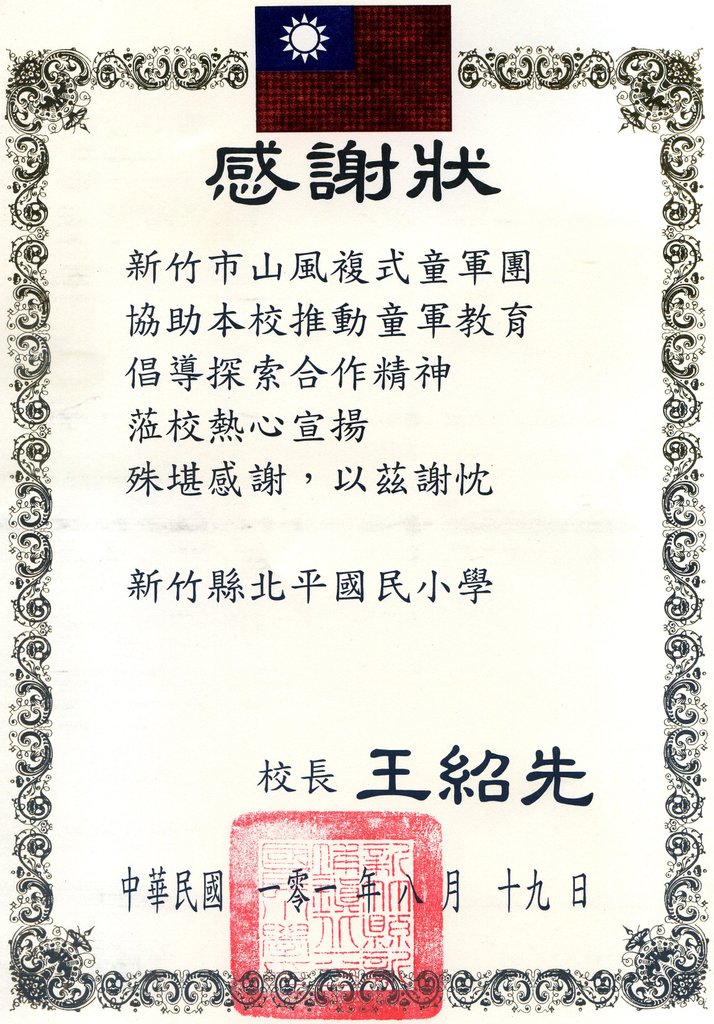 感謝狀
新竹市山風複式童軍團
協助本校推動童軍教育
倡導探索合作精神
蒞校熱心宣揚
殊堪感謝，以茲謝忱
新竹縣北平國民小學
校長 王紹先
中華民國 一零一 年 八 月 十九 日